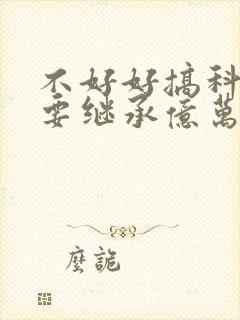 不好好搞科
要继承億萬
麼詭